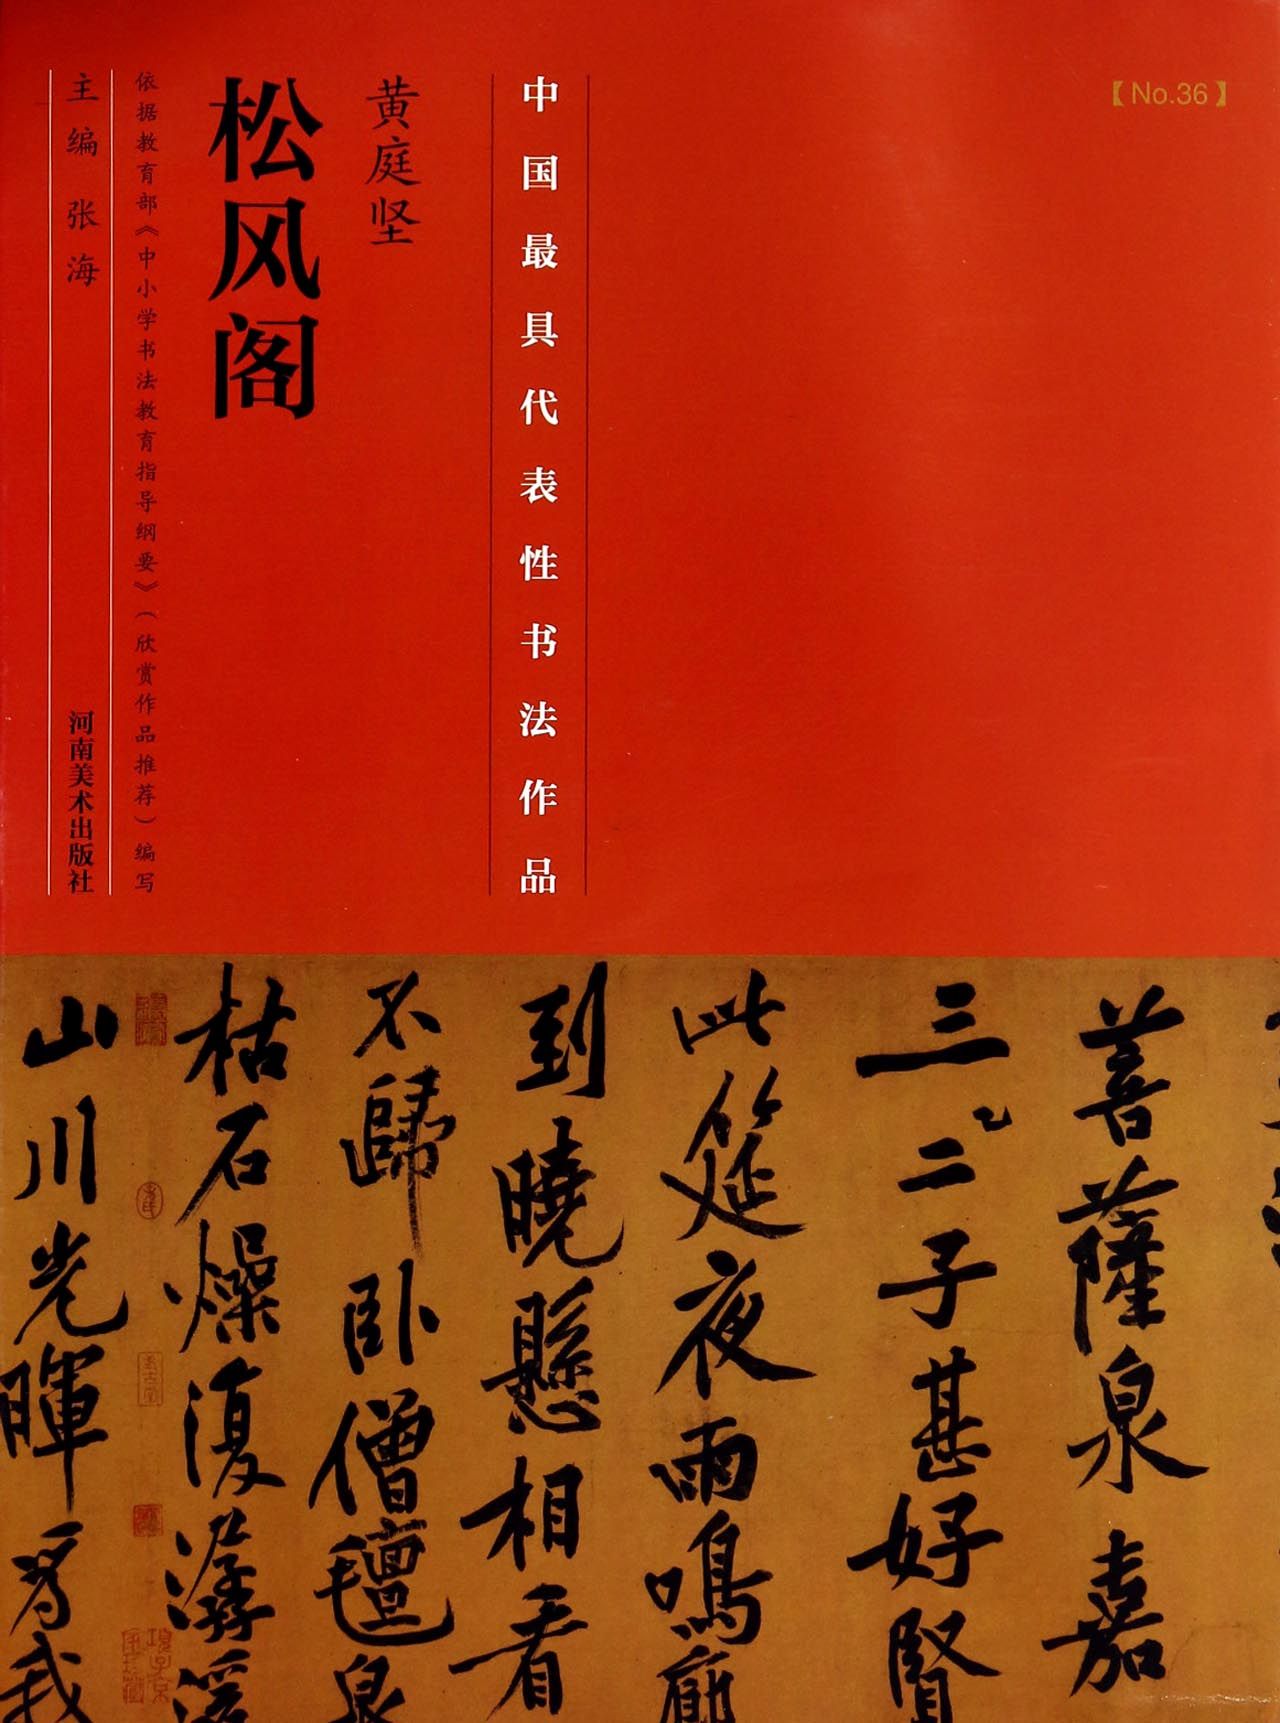 【No.36】
中国最具代表性书法作品
黄庭坚
松风阁
依据教育部《中小学书法教育指导纲要》（欣赏作品推荐）编写
主编 张海
河南美术出版社
菩薩泉嘉
三二子甚好賢
此筵夜雨鳴廊
到曉懸相看
不歸卧僧氊泉
枯石燥復潺湲
山川光暉為我
項子京